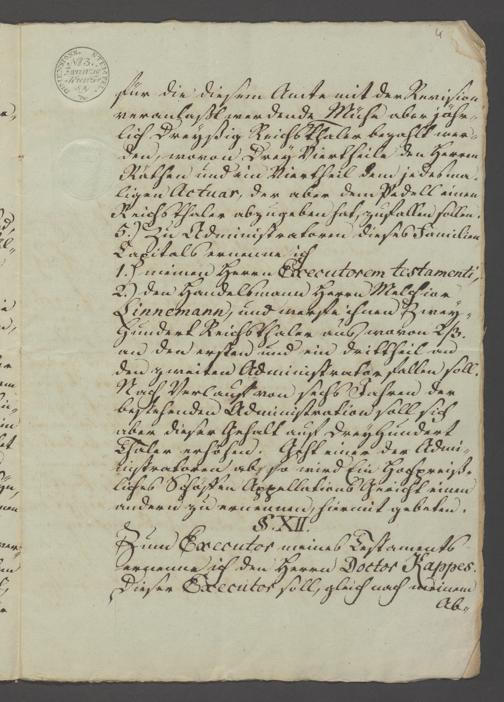 4
DIMENSIONS STEMPEL
No 3.
für die diesem Amte mit der Revision
veranlaßt werdende Mühe aber jähr-
lich Dreyßig Reichsthaler bezahlt wer-
den, wovon Drey Viertheile den Herrn
Räthen und ein Viertheil dem jedesma-
ligen Actuar, der aber dem Pedell einen
Reichsthaler abzugeben hat, zufallen sollen.
5.) Zu Administratoren dieses Familien
Capitals ernenne ich
1.) meinen Herrn Executorem testamenti,
2.) den Handelsmann Herrn Melchior
Linnemann, und werfe ihnen Zwey-
hundert Reichsthaler aus, wovon 2/3.
an den ersten und ein drittheil an
den zweiten Administrator fallen soll.
Nach Verlauf von sechs Jahren der
bestehenden Administration soll sich
aber dieser Gehalt auf Dreyhundert
Thaler erhöhen. Geht einer der Admi-
nistratoren ab, so wird Ein Hochpreiß-
liches Schöffen Appellations Gericht einen
andern zu ernennen, hiermit gebeten.
§. XII.
Zum Executor meines Testaments
ernenne ich den Herrn Doctor Kappes.
Dieser Executor soll, gleich nach meinem
Ab-